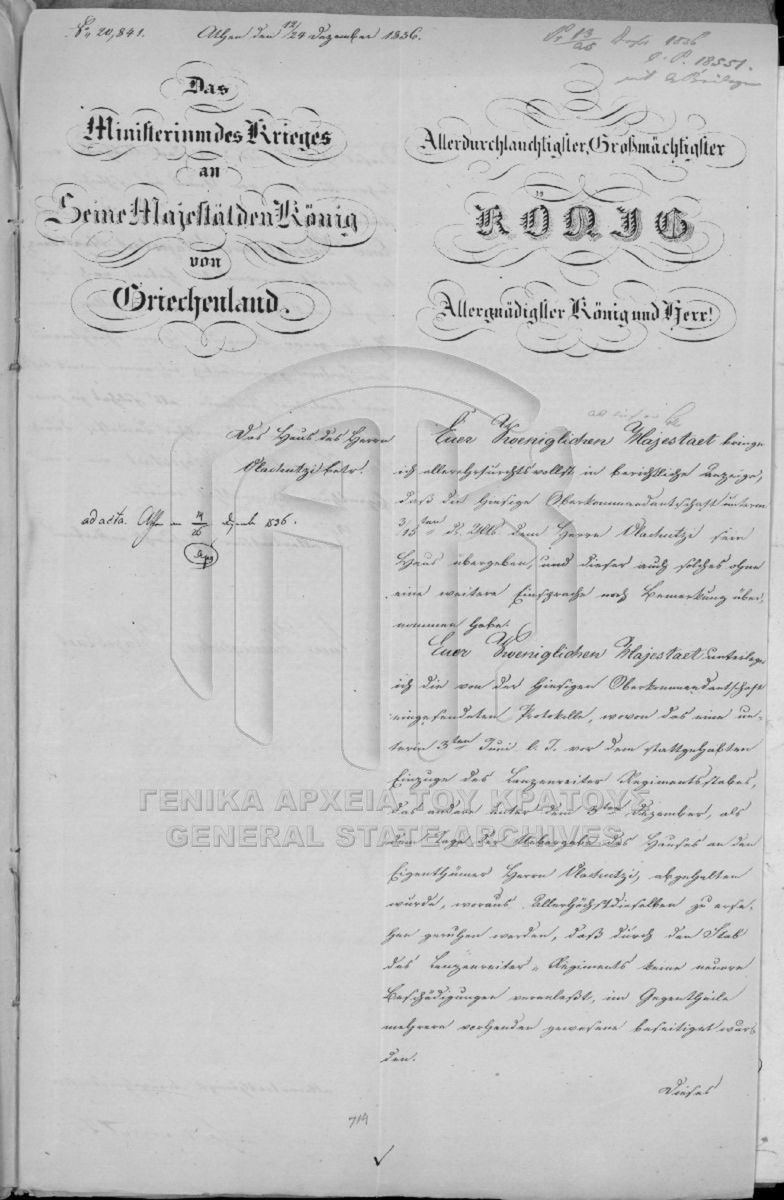 No 20,841. Athen den 12/24 Dezember 1836.
Pr 13/25 Dezbr 1836
E. P. 18551.
mit 2 Beilagen
Das
Ministerium des Krieges
an
Seine Majestät den König
von
Griechenland.
Allerdurchlauchtigster, Großmächtigster
KÖNIG
Allergnädigster König und Herr!
Das Haus des Herrn
Vlachutzi betr.
ad acta. Athen am 14/26 Dezember 1836.
Euer Koeniglichen Majestaet bringe
ich allerehrfurchtsvollst in berichtliche Anzeige,
daß die hiesige Oberkommandantschaft unterm
3/15ten ds. Mts dem Herrn Vlachutzi sein
Haus übergeben, und dieser auch solches ohne
eine weitere Einsprache noch Bemerkung über,
nommen habe.
Euer Koeniglichen Majestaet unterlege
ich die von der hiesigen Oberkommandantschaft
eingesendeten Protokolle, wovon das eine un-
term 3ten Juni l. J. vor dem stattgehabten
Einzuge des Lanzenreiter Regimentsstabes,
das andere unter dem 3ten Dezember, als
dem Tage der Uebergabe des Hauses an den
Eigenthümer Herrn Vlachutzi, abgehalten
wurde, woraus Allerhöchstdieselben zu erse-
hen geruhen werden, daß durch den Stab
des Lanzenreiter-Regiments keine neuere
Beschädigungen veranlaßt, im Gegentheile
mehrere vorhanden gewesene beseitiget wur-
den.
Dieses
714
ΓΕΝΙΚΑ ΑΡΧΕΙΑ ΤΟΥ ΚΡΑΤΟΥΣ
GENERAL STATE ARCHIVES